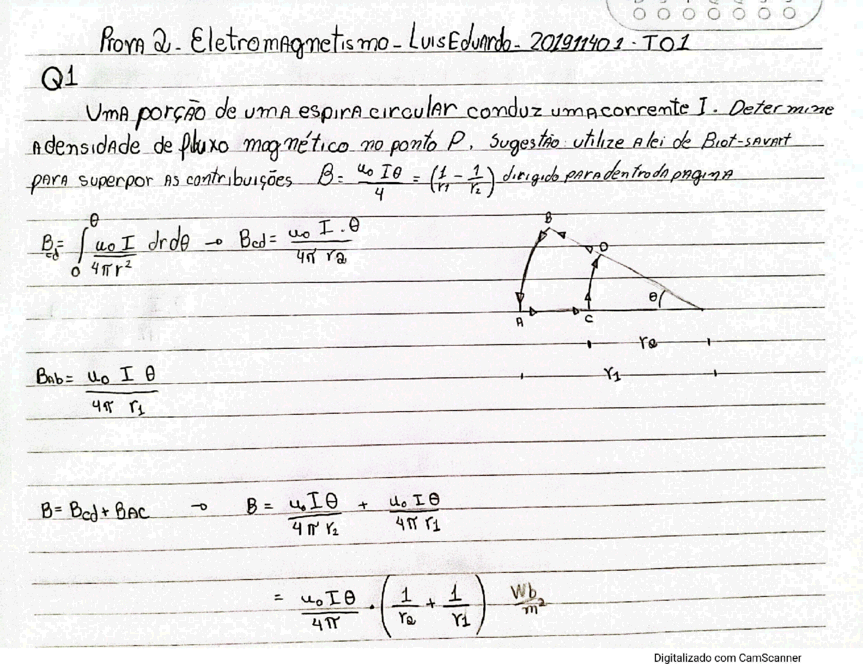 Prova 2 - Eletromagnetismo - Luis Eduardo - 201911401 - T01
Q1
Uma porção de uma espira circular conduz uma corrente I. Determine
a densidade de fluxo magnético no ponto P. Sugestão: utilize a lei de Biot-savart
para superpor as contribuições B = u₀ Iθ/4 = (1/r1 - 1/r2) dirigido para dentro da pagina
Bcd = ∫₀^θ u₀ I/4πr² dr dθ → Bcd = u₀ I . θ/4π r2
B
D
θ
A
C
r2
r1
BAb = u₀ I θ/4π r1
B = Bcd + BAC → B = u₀ I θ/4π r2 + u₀ I θ/4π r1
= u₀ I θ/4π . (1/r2 + 1/r1) Wb/m²
Digitalizado com CamScanner